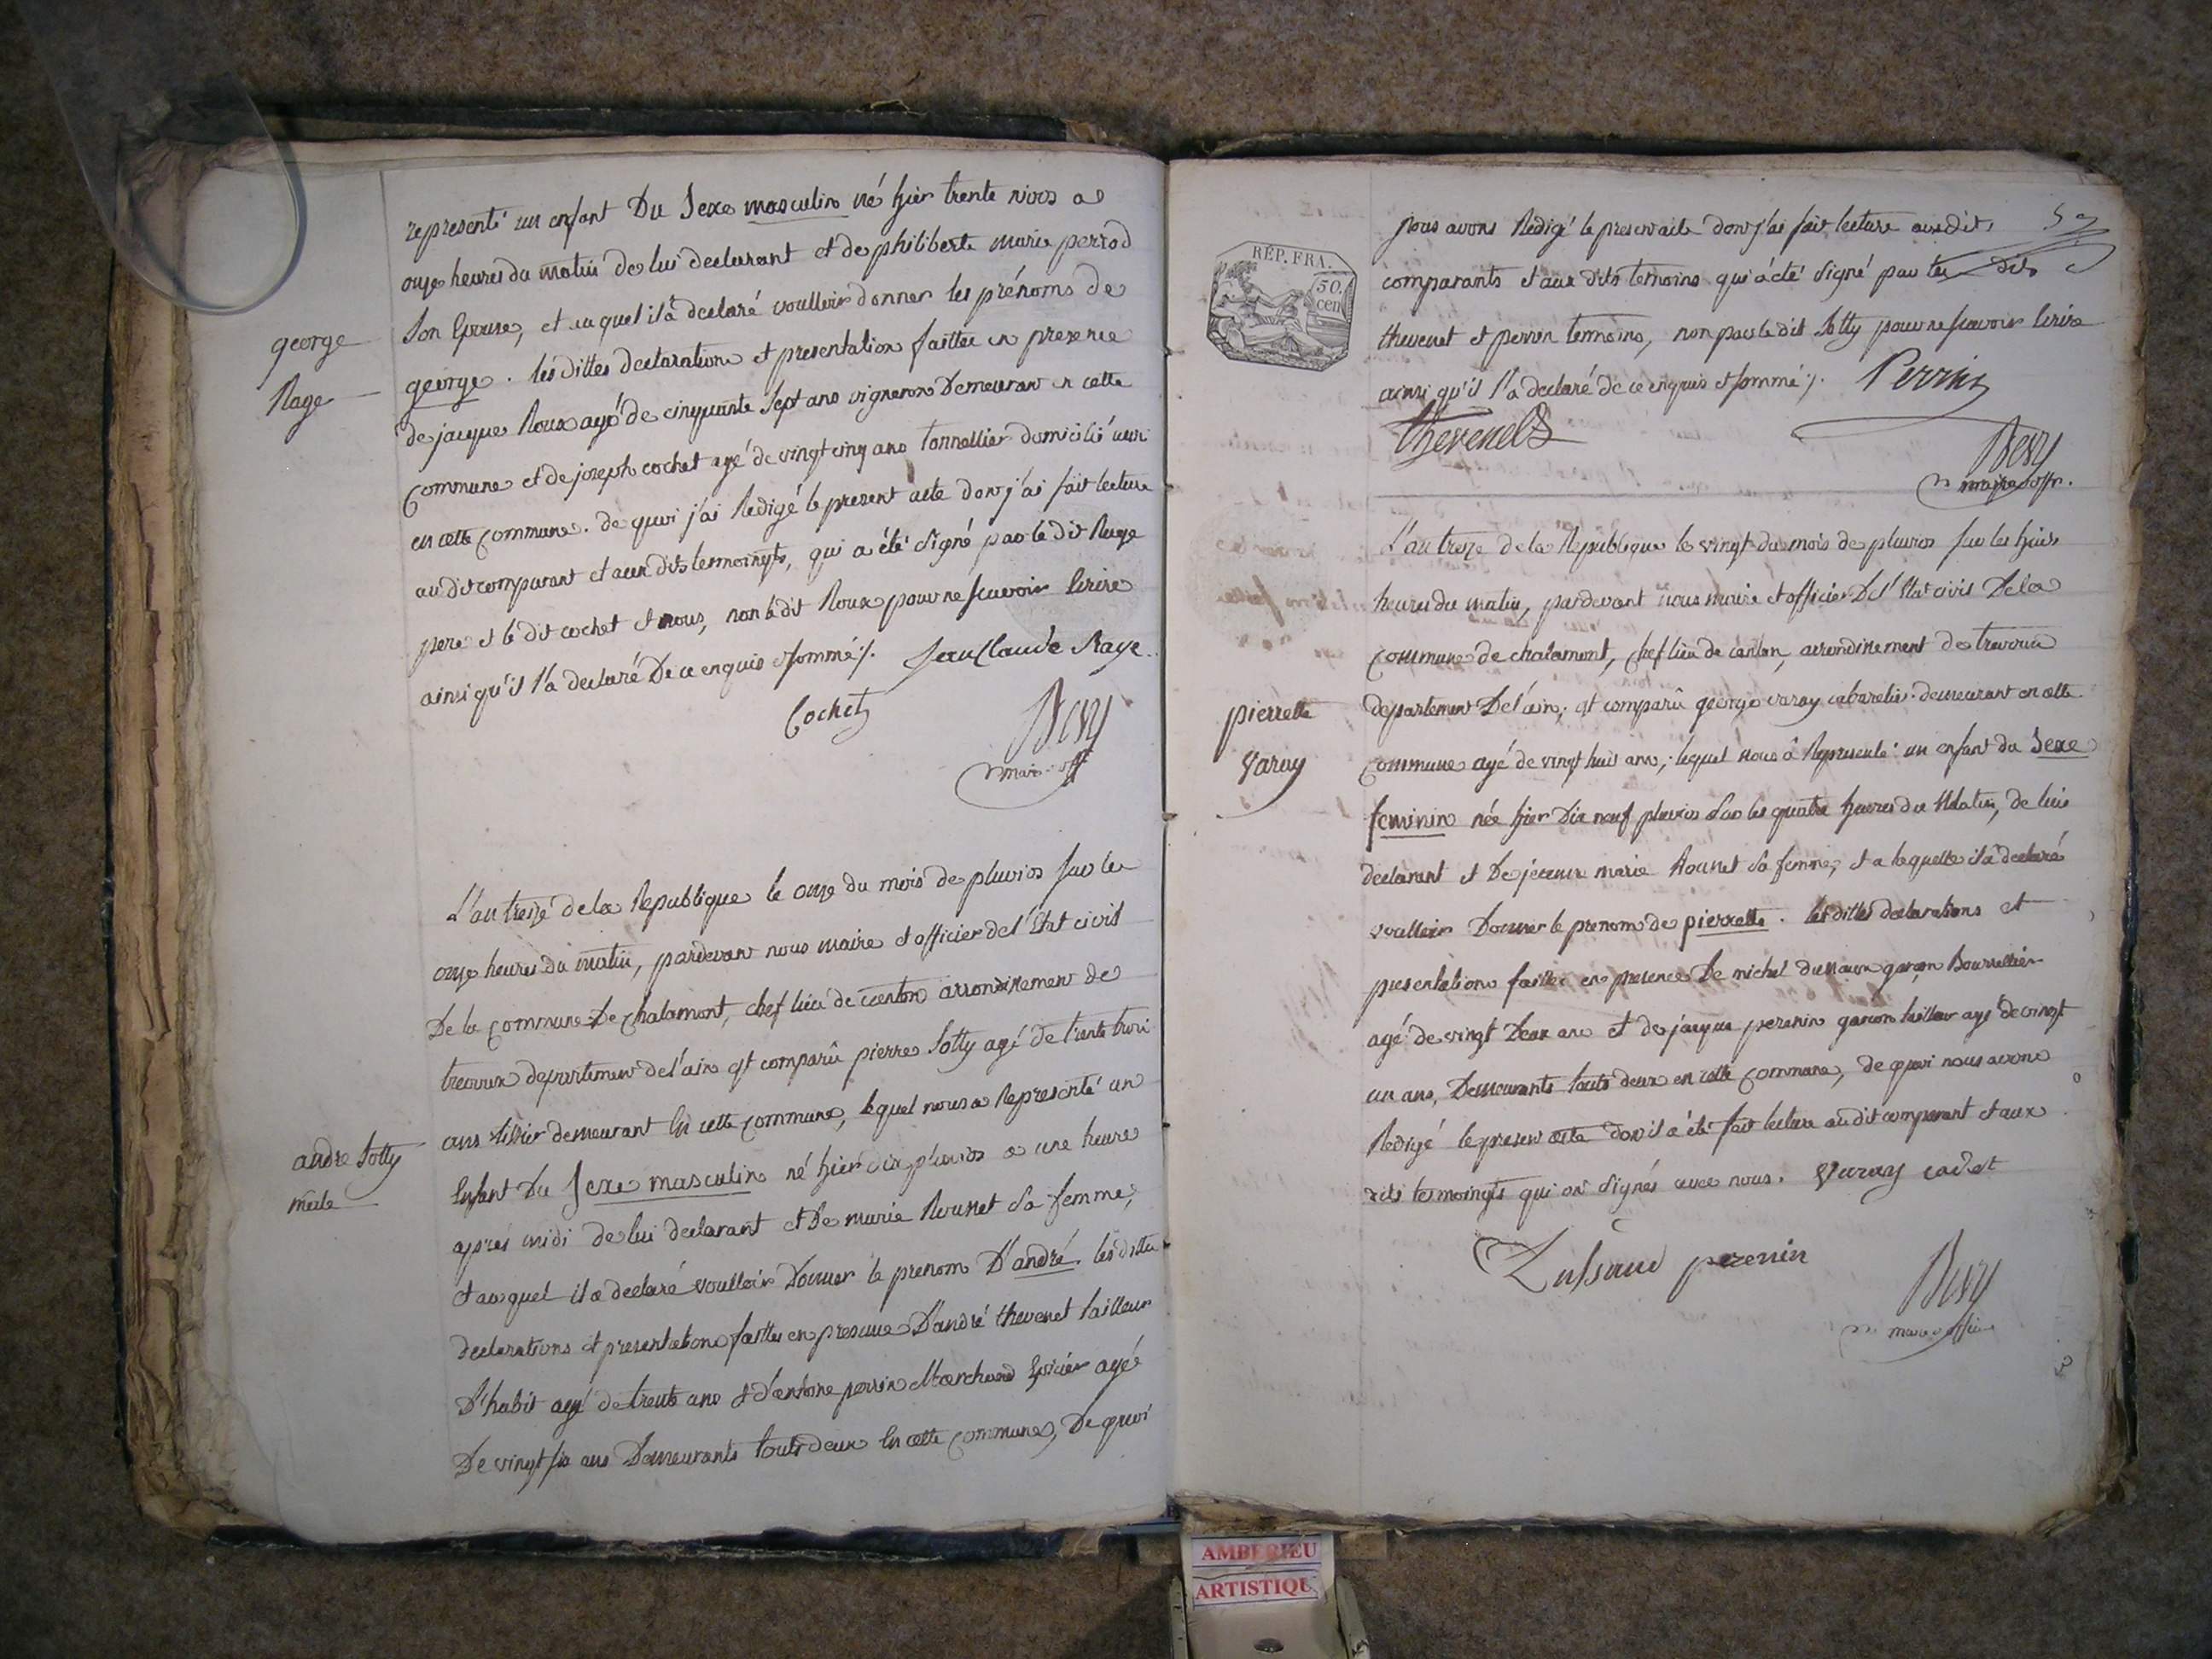 representé un enfant Du Sexe masculin né hier trente nivos a
onze heures du matin de lui declarant et de philiberte marie perrod
Son Epouse, et auquel il a declaré voulloir donner les prénoms de
george
george. les dittes declarations et presentation faittes en presence
Rage
de jacque Roux agé de cinquante Sept ans vigneron Demeurant en cette
commune et de joseph cochet agé de vingt cinq ans tonnellier domicilié aussi
en cette commune. de quoi j'ai Redigé le present acte dont j'ai fait lecture
au dit comparant et aux dits temoingts, qui a été signé par le dit Rage
pere et le dit cochet et nous, non le dit Roux pour ne scavoir Ecrire
ainsi qu'il l'a declaré De ce enquis et sommé ./. Jean Claude Rage
Cochet
Bery
maire off
L'an treize de la Republique le onze du mois de pluvios sur les
onze heures du matin, pardevant nous maire et officier de l'Etat civil
De la commune De chalamont, chef lieu de canton arrondissement de
trevoux departement de l'ain est comparû pierre Sotty agé de trente trois
ans tissier demeurant En cette commune, lequel nous a Representé un
andre Sotty
Enfant Du Sexe masculin né hier dix pluvios a une heure
male
après midi de lui declarant et De marie Rounet Sa femme,
et auquel il a declaré voulloir Donner le prenom D'andré. les dittes
declarations et presentations faittes en presence D'andré thevenet tailleur
D'habit agé de trente ans et d'antoine perrin Marchand Epicier agé
De vingt six ans Demeurants touts deux En cette commune, De quoi
nous avons Redigé le present acte dont j'ai fait lecture ausdits
comparants et aux dits temoins qui a été signé par les dits
REP. FRA.
50.
cen
thevenet et perrin temoins, non pas le dit Sotty pour ne scavoir Ecrire
ainsi qu'il l'a declaré de ce enquis et sommé ./. Perrin
thevenet
Bery
maire off.
L'an treize de la Republique le vingt du mois de pluvios sur les huit
heures du matin, pardevant nous maire et officier De l'Etat civil De la
commune de chalamont, chef lieu de canton, arrondissement de trevoux
pierrette
departement De l'ain, est comparû george varay cabaretier demeurant en cette
Varay
commune agé de vingt huit ans, lequel nous a Representé un enfant du Sexe
feminin née hier Dix neuf pluvios sur les quatre heures du Matin, de lui
declarant et De jeanne marie Rounet Sa femme, et a laquelle il a declaré
voulloir Donner le prenom de pierrette. les dittes declarations et
presentations faittes en presence De michel garçon Bourrellier
agé de vingt Deux ans et de jacque perenin garçon tailleur agé de vingt
un ans, Demeurants touts deux en cette commune, de quoi nous avons
Redigé le present acte dont il a été fait lecture audit comparant et aux
dits temoingts qui ont signés avec nous. Varay cadet
perenin
Bery
maire